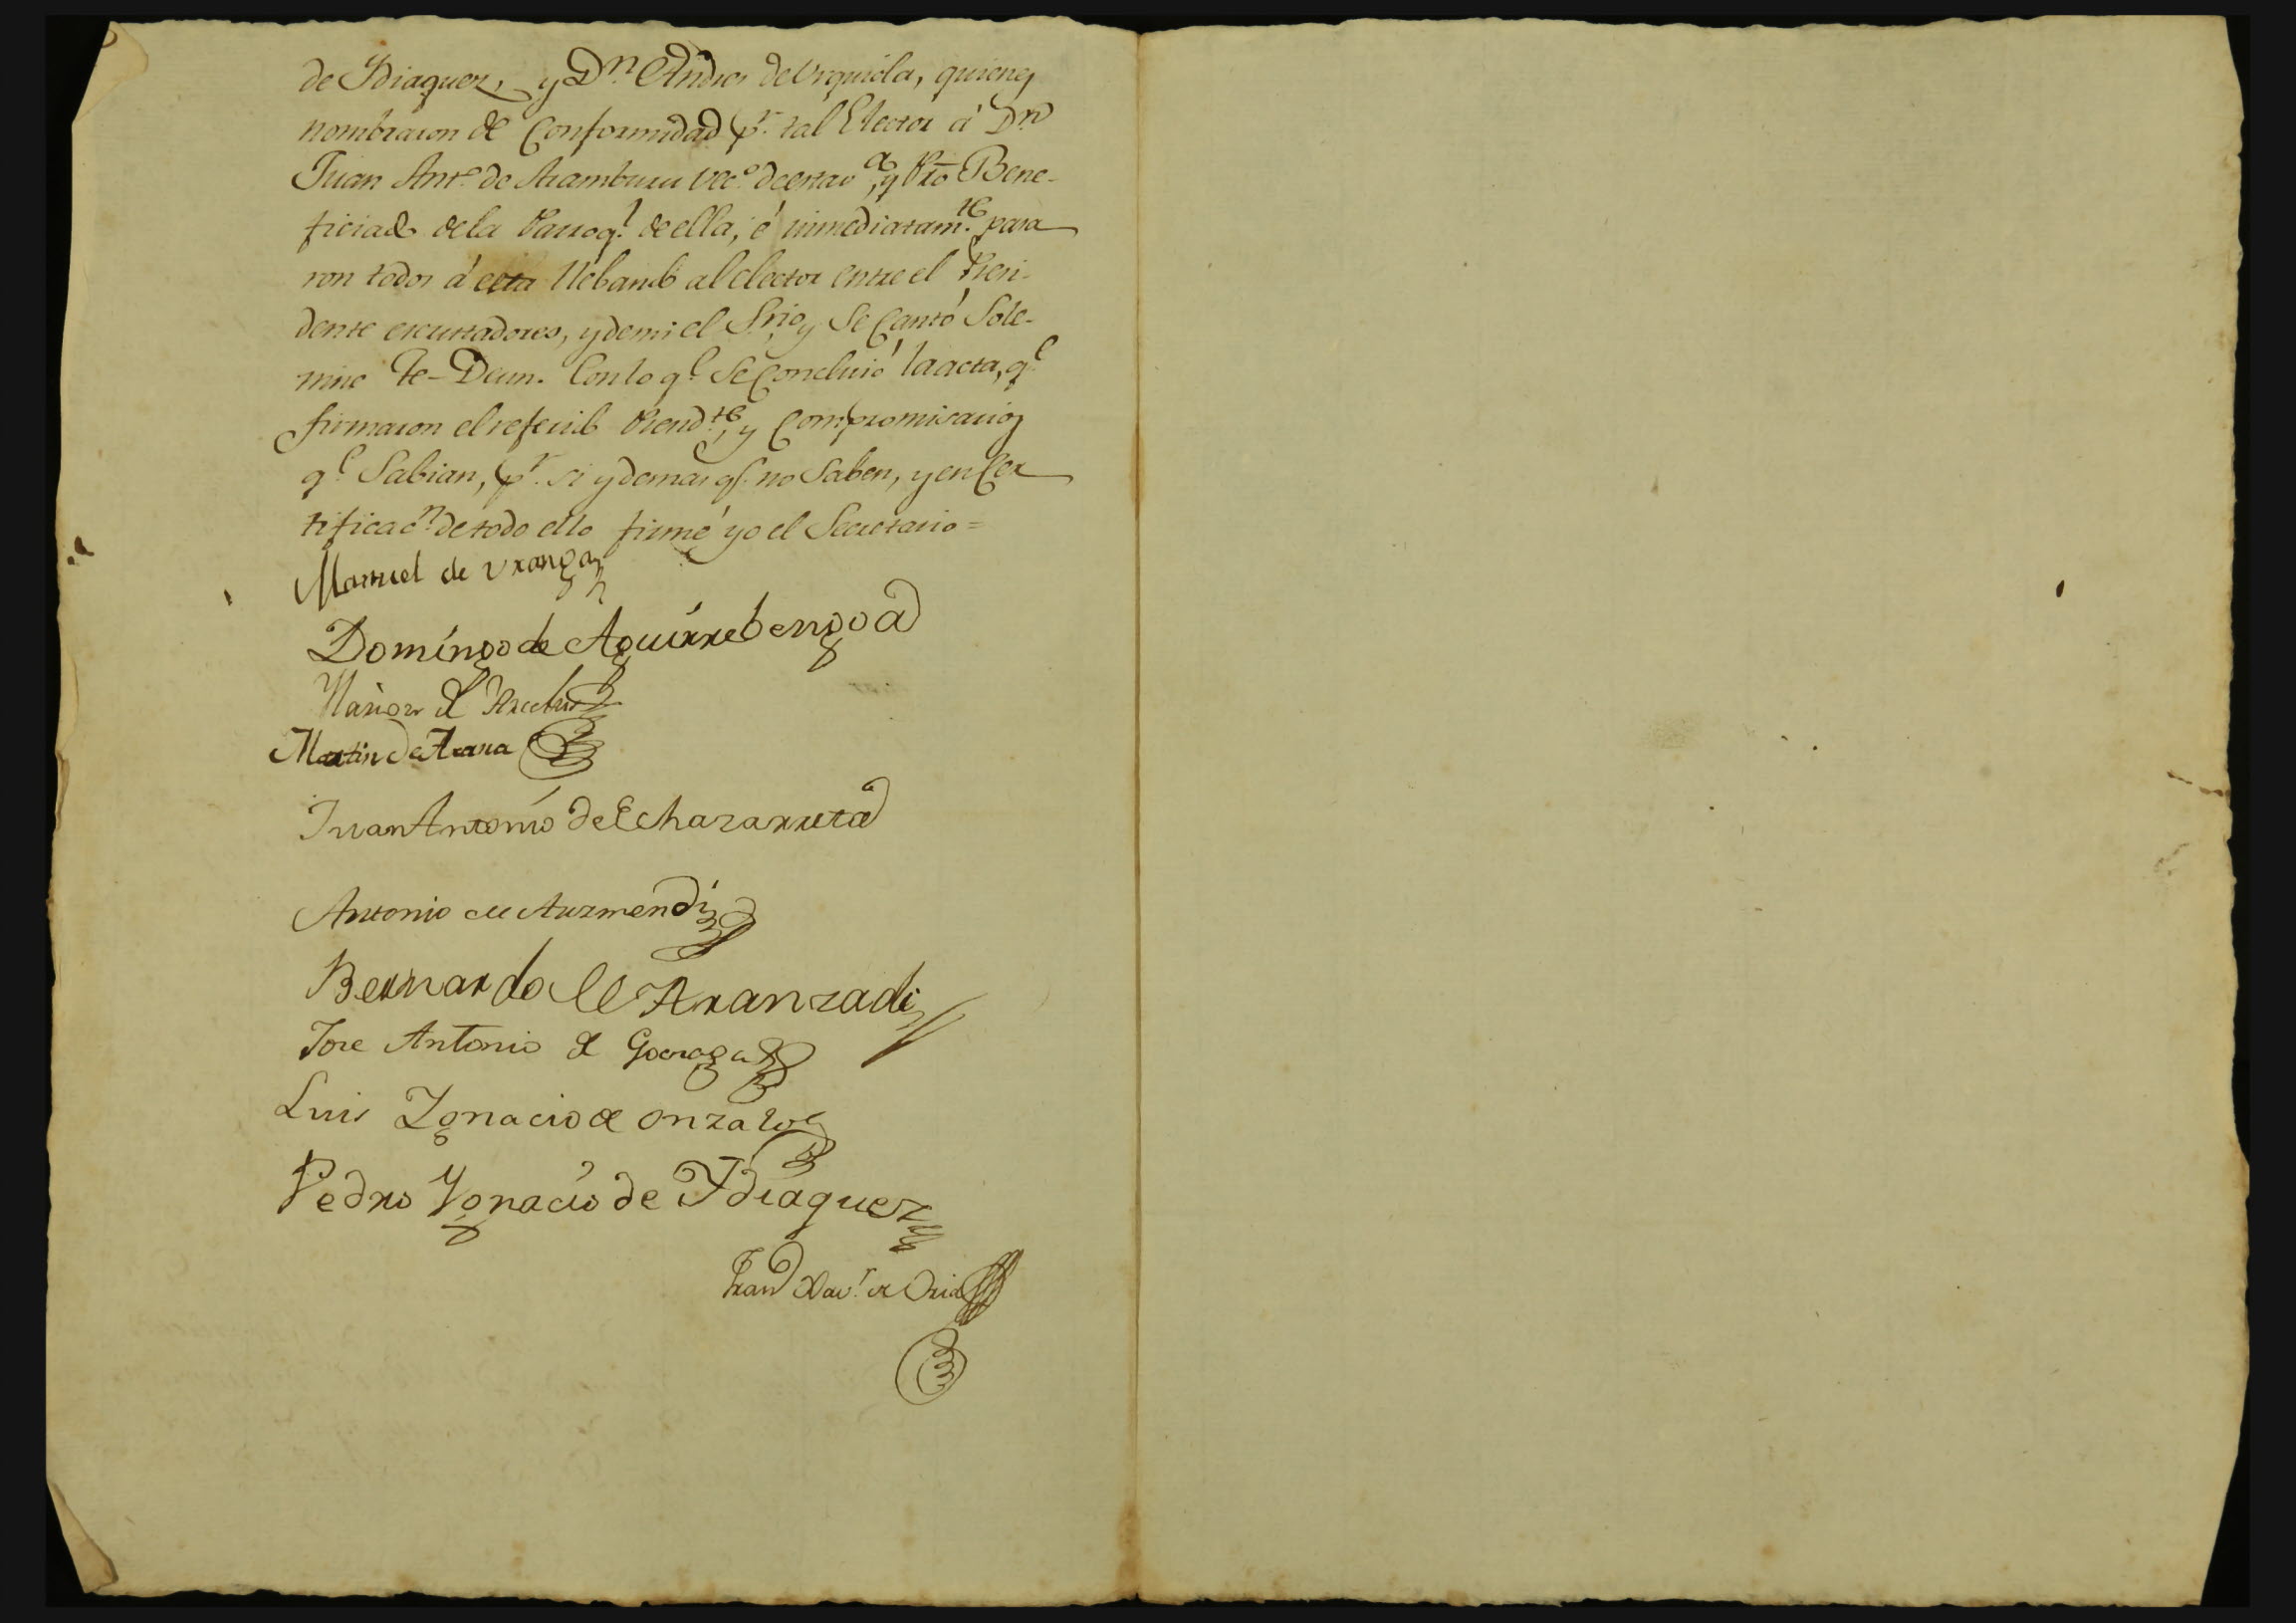 de Ydiaquez, y Dn. Andres de Urquiola, quienes
nombraron de Conformidad pr. tal Elector á Dn
Juan Anto. de Aramburu vecº. de esta va, y Pro Bene-
ficiado de la Parroql. de ella, é inmediatamte. pasa
ron todos á esta llebando al elector entre el Presi-
dente escutadores, y demi el Srio, y Se Cantó Sole-
mne Te-Deum. Con lo qe. Se Concluió la acta, qe.
firmaron el referido Presidte, y Compromisarios
qe. Sabian, pr. si y demas qe. no Saben, y en Cer
tificacn. de todo ello firmé yo el Secretario =
Manuel de Uranga
Domingo de Aguirrebengoa
de
Martin de Arana
Juan Antonio de Echazarreta
Antonio de Auzmendi
Bernardo de Aranzadi
Jose Antonio de Goenaga
Luis Ignacio de
Pedro Ygnacio de Ydiaquez
Franco Xavr. de Oria